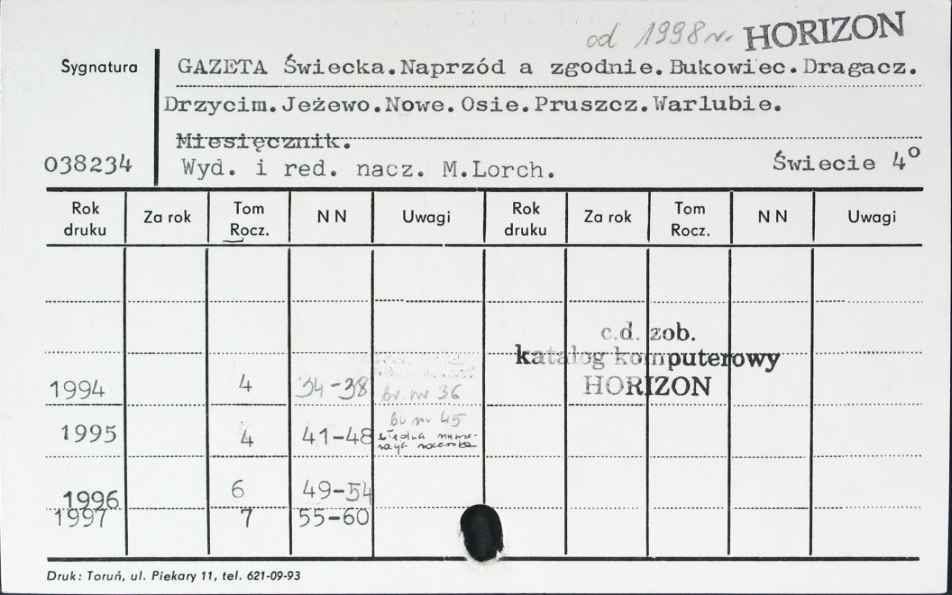 od 1998 r. HORIZON
Sygnatura
GAZETA Świecka.Naprzód a zgodnie.Bukowiec.Dragacz.
Drzycim.Jeżewo.Nowe.Osie.Pruszcz.Warlubie.
Miesięcznik.
038234 Wyd. i red. nacz. M.Lorch. Świecie 4º
Rok druku Za rok Tom Rocz. NN Uwagi Rok druku Za rok Tom Rocz. NN Uwagi
c.d. zob.
katalog komputerowy
HORIZON
1994 4 34-38 br. nr 36
1995 4 41-48 br. nr 45
błędna nume-
racja rocznika
1996 6 49-54
1997 7 55-60
Druk: Toruń, ul. Piekary 11, tel. 621-09-93